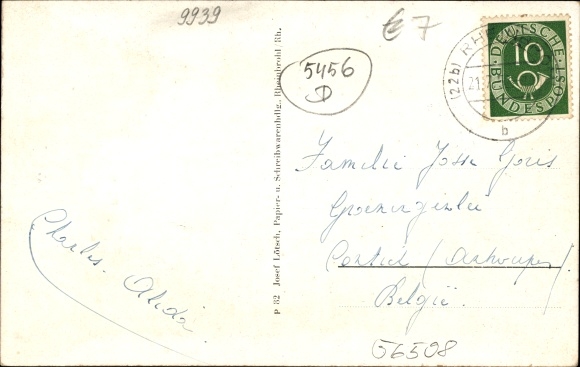 9939
€7
5456
D
DEUTSCHE
10
BUNDESPOST
(22b) RHE
21.
b
P 82 Josef Lötsch, Papier- u. Schreibwarenhdlg., Rheinbrohl/Rh.
Familie Josse Goris
Contich (Antwerpen).
België.
Charles. Alida.
56508